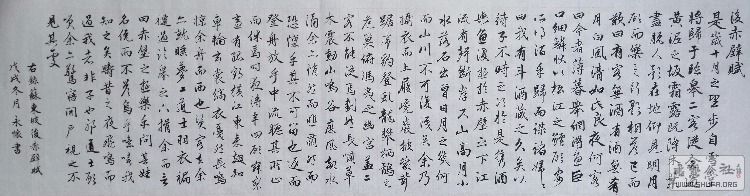 後赤壁賦
是歲十月之望步自雪堂
將歸于臨皋二客從余過
黃泥之坂霜露既降木葉
盡脫人影在地仰見明月
顧而樂之行歌相答已而
歎曰有客無酒有酒無肴
月白風清如此良夜何客
曰今者薄暮舉網得魚巨
口細鱗狀似松江之鱸顧安
所得酒乎歸而謀諸婦婦
曰我有斗酒藏之久矣以
待子不時之須於是攜酒
與魚復遊於赤壁之下江
流有聲斷岸千尺山高月小
水落石出曾日月之幾何
而江山不可復識矣余乃
攝衣而上履巉巖披蒙茸
踞虎豹登虬龍攀棲鶻之
危巢俯馮夷之幽宮蓋二
客不能從焉劃然長嘯草
木震動山鳴谷應風起水
涌余亦悄然而悲肅然而
恐凜乎其不可留也返而
登舟放乎中流聽其所止
而休焉時夜將半四顧寂寥
適有孤鶴橫江東來翅如
車輪玄裳縞衣戛然長鳴
掠余舟而西也須臾客去余
亦就睡夢二道士羽衣蹁
躚過臨皋之下揖余而言
曰赤壁之遊樂乎問其姓
名俛而不答嗚呼噫嘻我
知之矣疇昔之夜飛鳴而
過我者非子也邪道士顧
笑余亦驚寤開戶視之不
見其處
右錄蘇東坡後赤壁賦
戊戌冬月 永 書
WWW.SHUFA.ORG